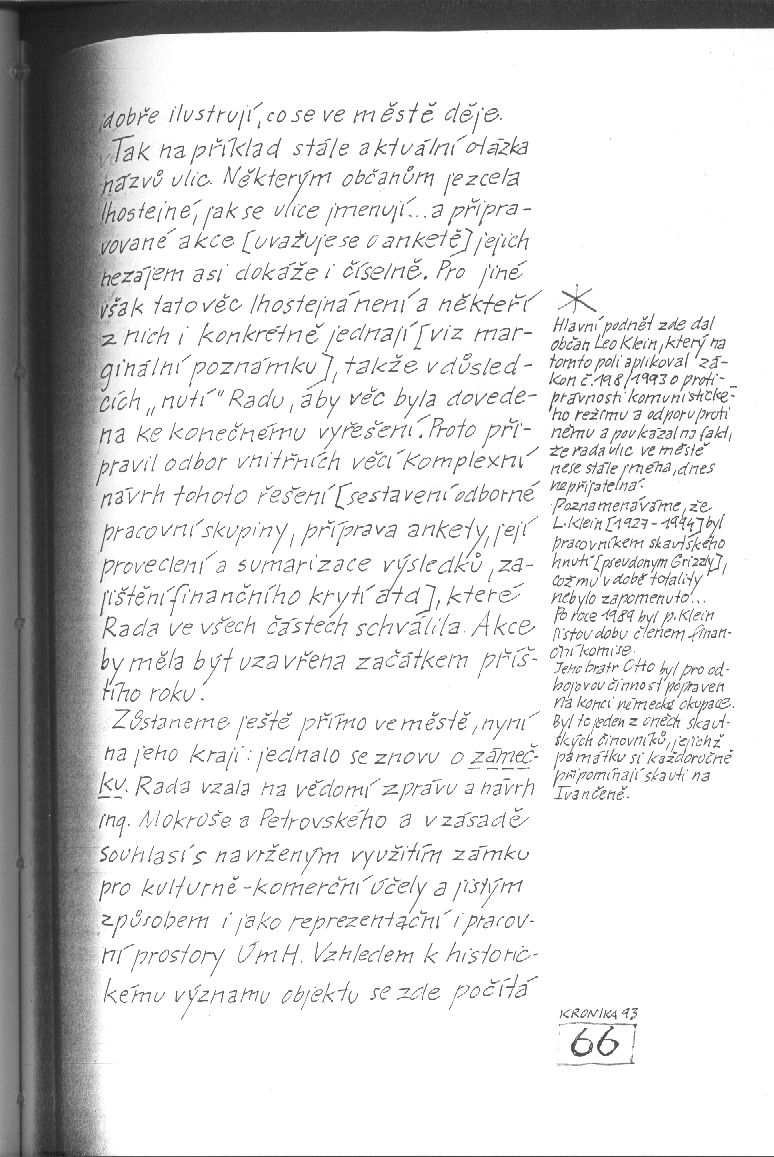 dobře ilustrují, co se ve městě děje.
Tak například stále aktuální otázka
názvů ulic. Některým občanům je zcela
lhostejné, jak se ulice jmenují... a připra-
vované akce [uvažuje se o anketě] jejich
nezájem asi dokáže i číselně. Pro jiné
však tato věc lhostejná není a někteří
z nich i konkrétně jednají [viz mar-
ginální poznámku], takže v důsled-
cích „nutí" Radu, aby věc byla dovede-
na ke konečnému vyřešení. Proto při-
pravil odbor vnitřních věcí komplexní
návrh tohoto řešení [sestavení odborné
pracovní skupiny, příprava ankety, její
provedení a sumarizace výsledků, za-
jištění finančního krytí atd], které
Rada ve všech částech schválila. Akce
by měla být uzavřena začátkem příš-
tího roku.
Zůstaneme ještě přímo ve městě, nyní
na jeho kraji: jednalo se znovu o zámeč-
ku. Rada vzala na vědomí zprávu a návrh
ing. Mokroše a Petrovského a v zásadě
souhlasí s navrženým využitím zámku
pro kulturně-komerční účely a jistým
způsobem i jako reprezentační i pracov-
ní prostory ÚmH. Vzhledem k historic-
kému významu objektu se zde počítá
*
Hlavní podnět zde dal
občan Leo Klein, který na
tomto poli aplikoval zá-
kon č. 198/1993 o proti-
právnosti komunistické-
ho režimu a odporu proti
němu a poukázal na fakt,
že řada ulic ve městě
nese stále jména, dnes
nepřijatelná.
Poznamenáváme, že
L. Klein [1927-1994] byl
pracovníkem skautského
hnutí [pseudonym Grizzly],
což mu v době totality
nebylo zapomenuto!...
Po roce 1989 byl p. Klein
jistou dobu členem finan-
ční komise.
Jeho bratr Otto byl pro od-
bojovou činnost popraven
na konci německé okupace.
Byl to jeden z oněch skaut-
ských činovníků, jejichž
památku si každoročně
připomínají skauti na
Ivančeně.
KRONIKA 93
66